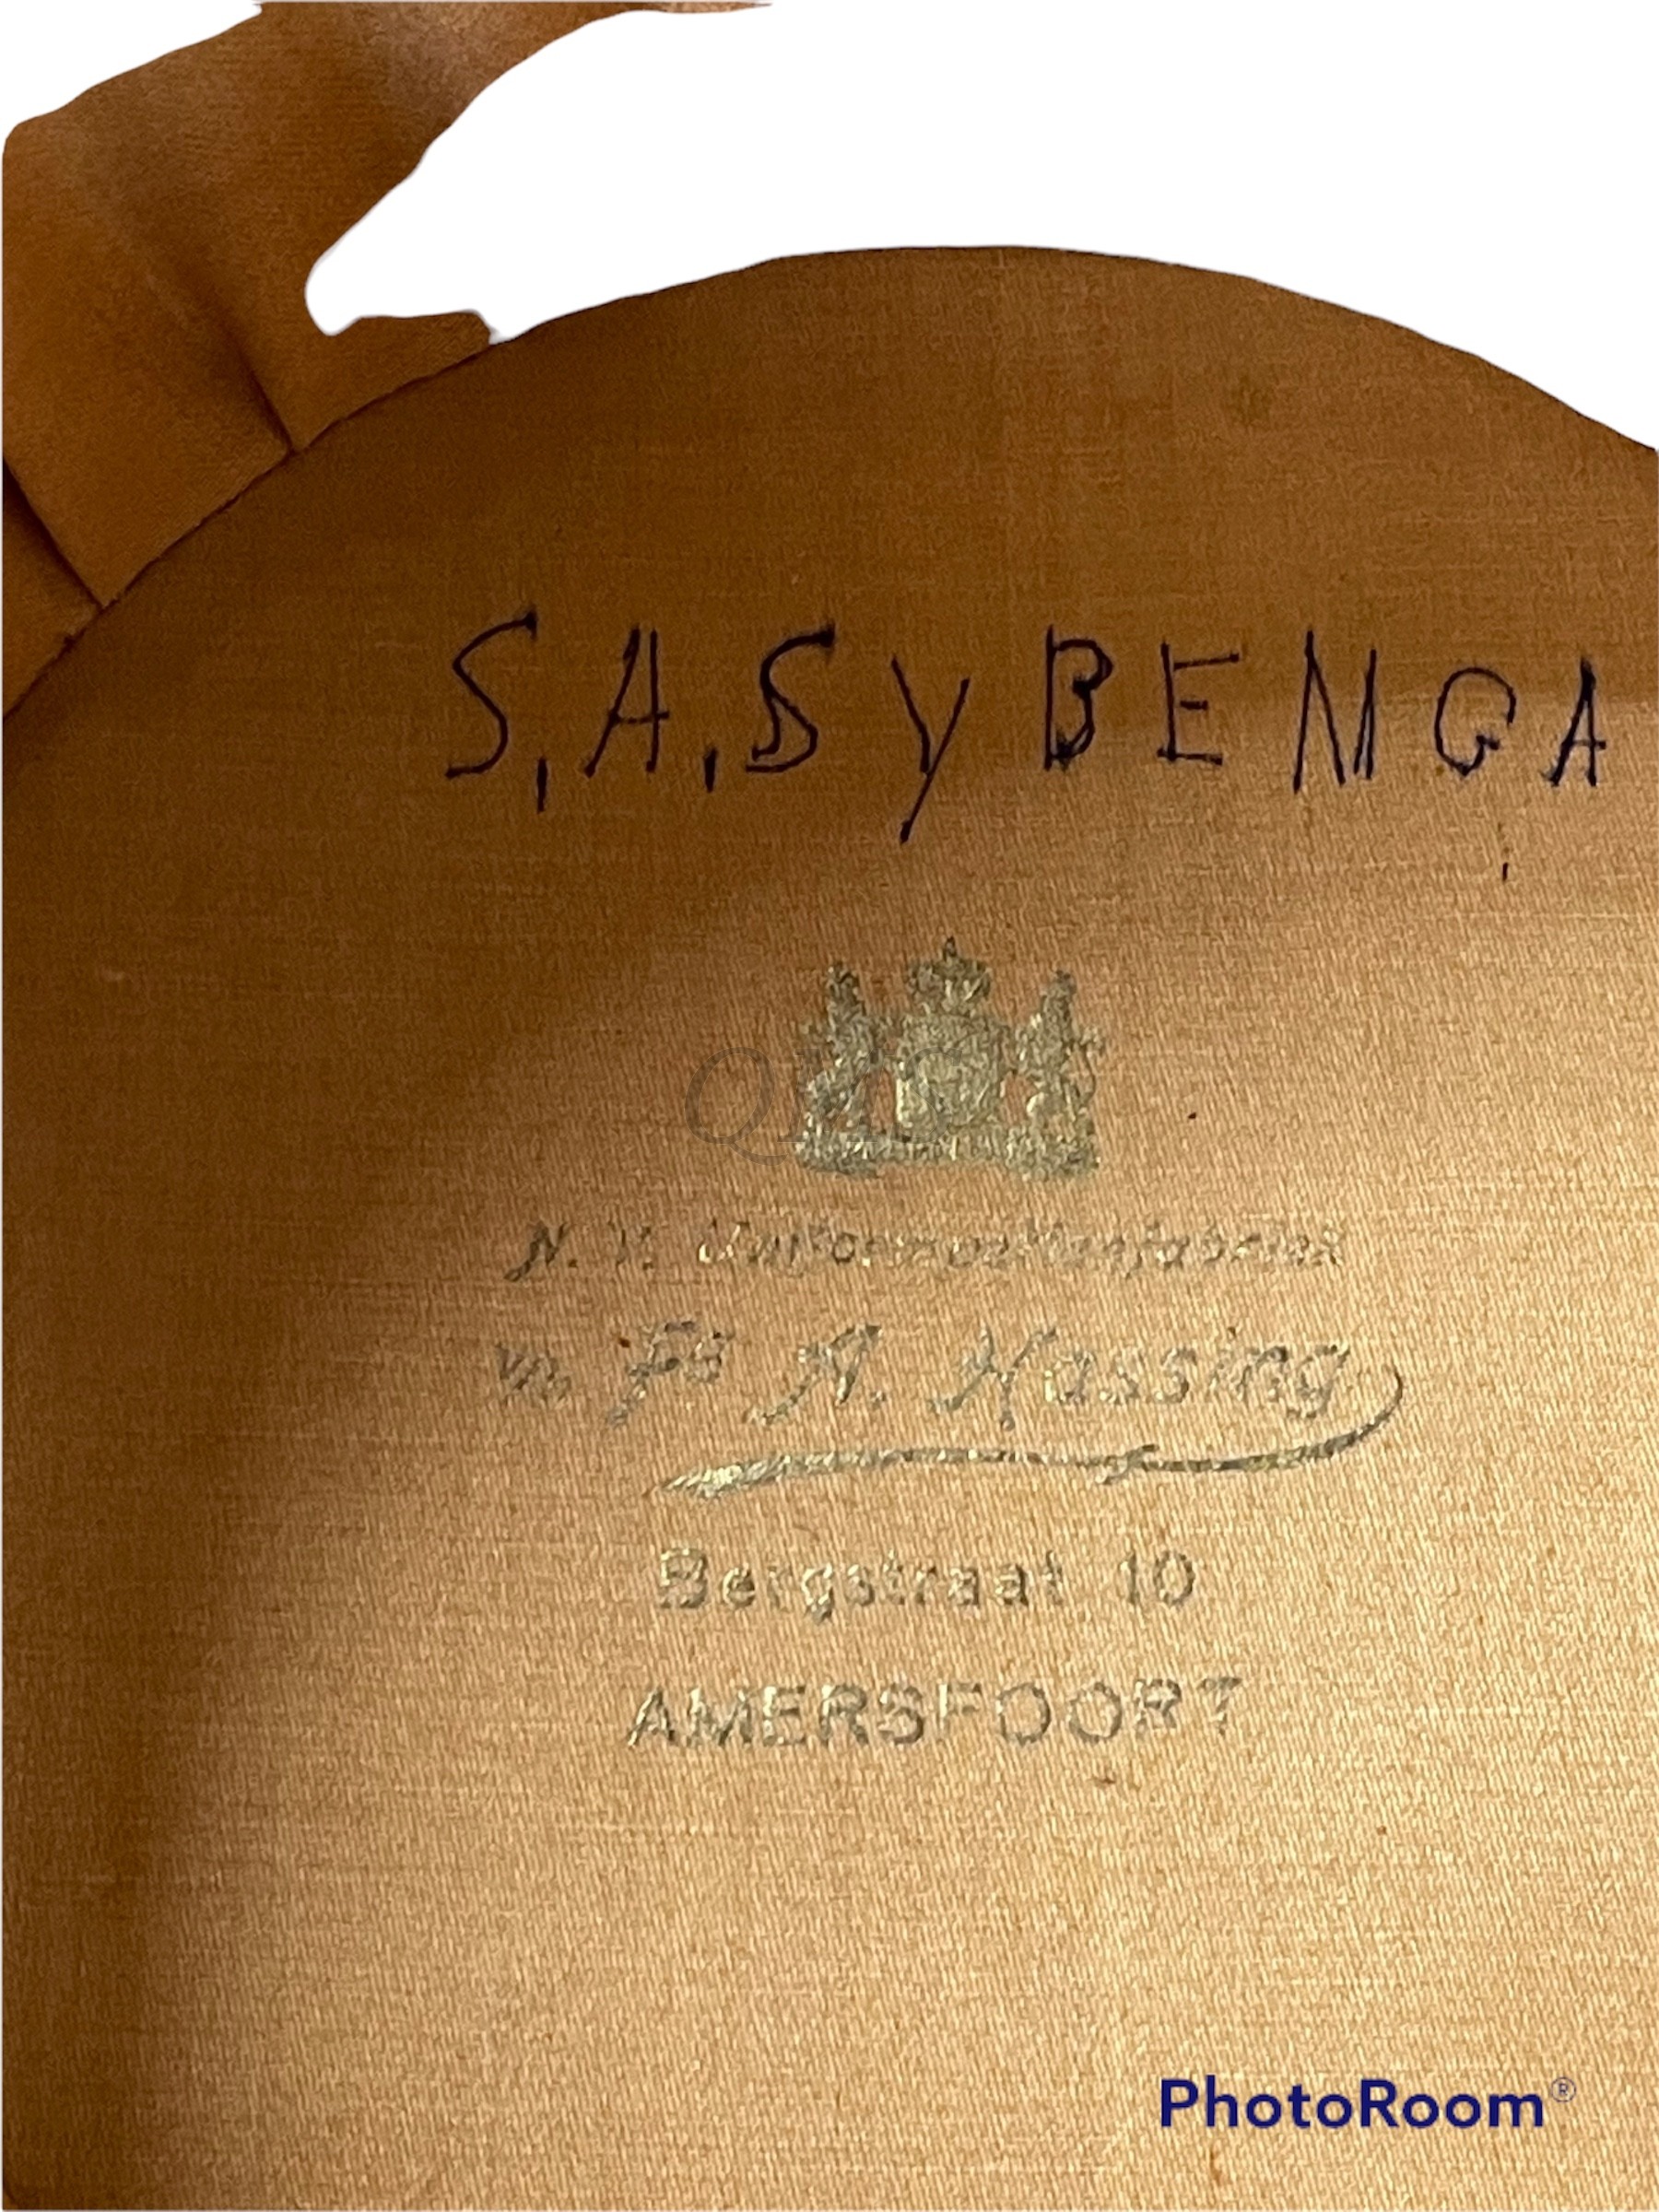 S.A. SyBENGA
QMS
N.V. Uniformpettenfabriek
v/h Fa A. Hassing
Bergstraat 10
AMERSFOORT
PhotoRoom®